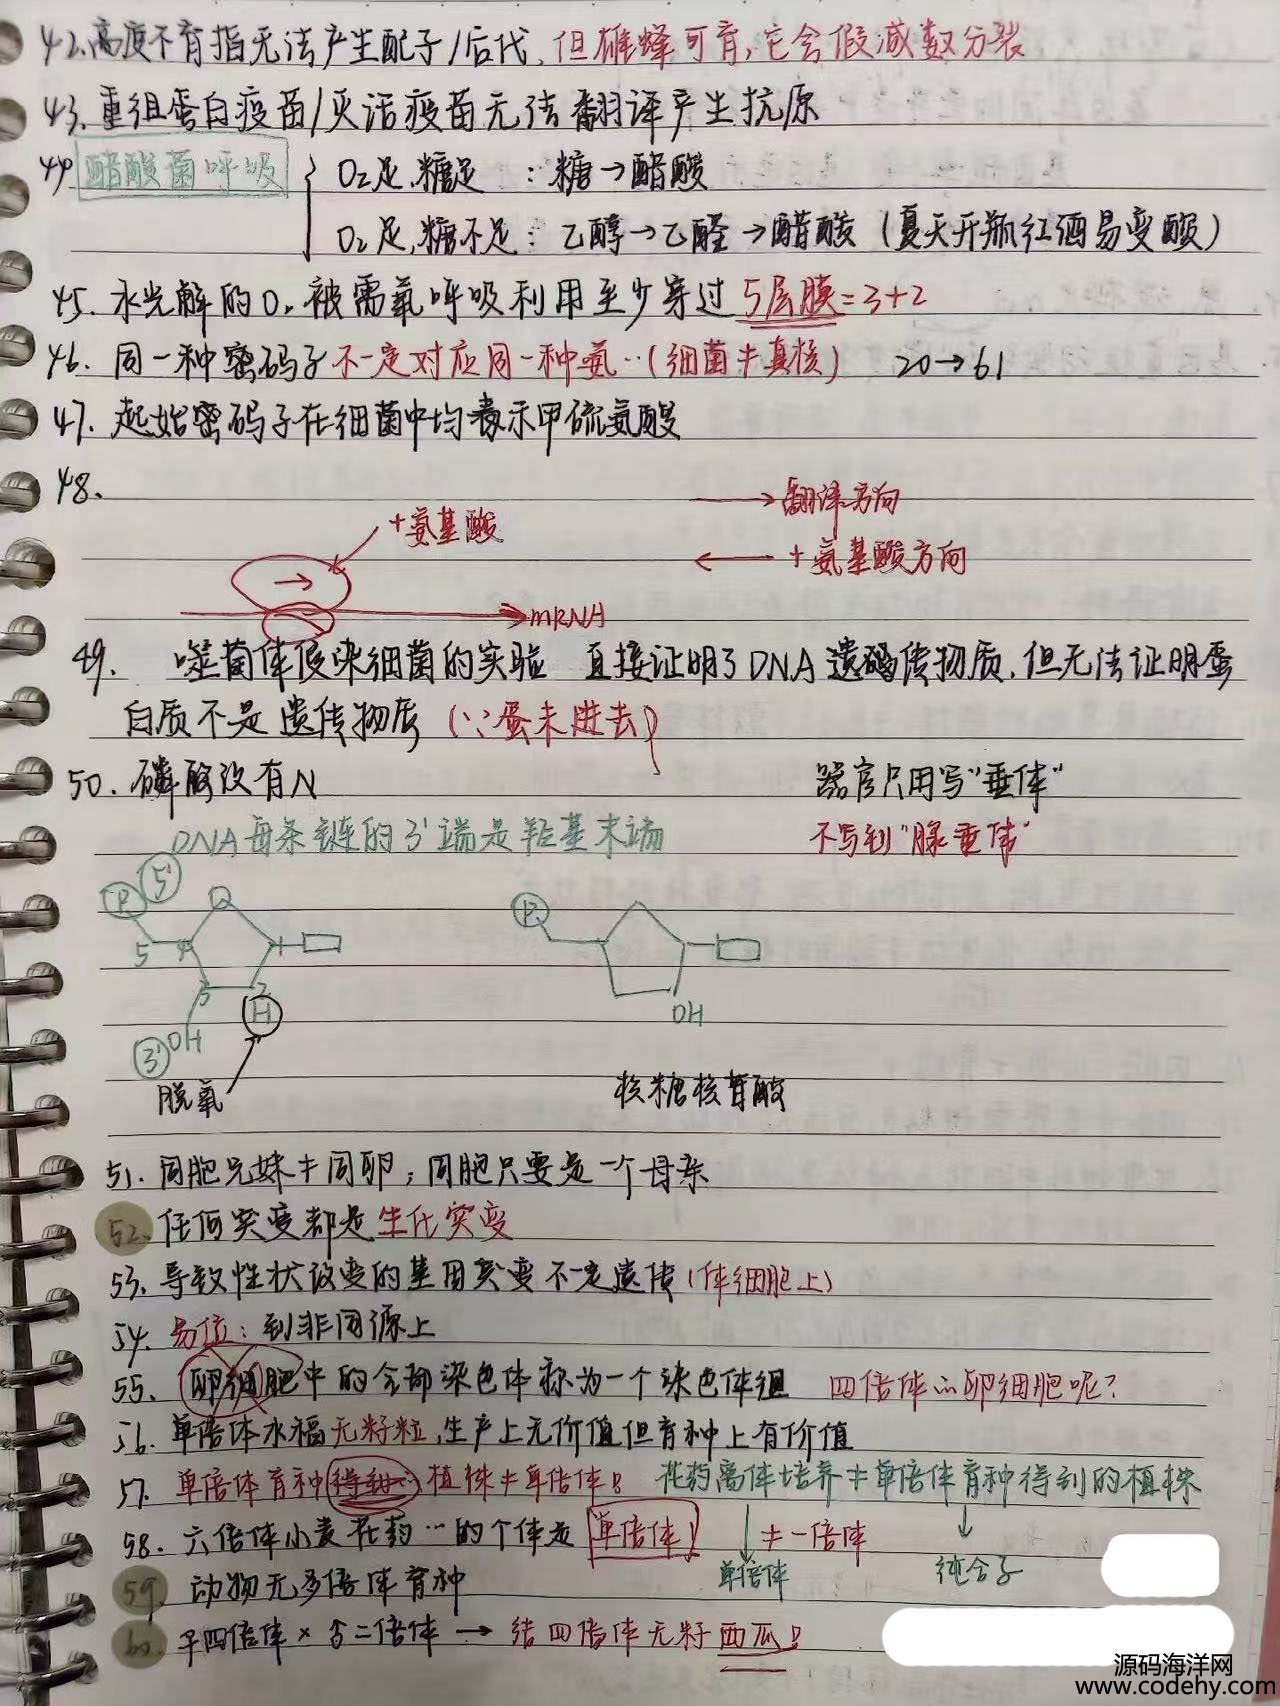 42.高度不育指无法产生配子/后代,但雄蜂可育,它会假减数分裂
43.重组蛋白疫苗/灭活疫苗无法翻译产生抗原
44.醋酸菌呼吸
O₂足,糖足：糖→醋酸
O₂足,糖不足：乙醇→乙醛→醋酸（夏天开瓶红酒易变酸）
45.水光解的O₂被需氧呼吸利用至少穿过5层膜=3+2
46.同一种密码子不一定对应同一种氨…(细菌≠真核) 20→61
47.起始密码子在细菌中均表示甲硫氨酸
48.
→翻译方向
+氨基酸
←+氨基酸方向
mRNA
49. 噬菌体侵染细菌的实验 直接证明了DNA是遗传物质,但无法证明蛋
白质不是遗传物质(∵蛋未进去)
50.磷酸没有N
器官只用写"垂体"
DNA每条链的3'端是羟基末端
不写到"腺垂体"
P 5'
O
5 4 1
3 2
OH H
3'
脱氧
P
OH
核糖核苷酸
51.同胞兄妹≠同卵;同胞只要是一个母亲
52.任何突变都是生化突变
53.导致性状改变的基因突变不一定遗传(体细胞上)
54.易位：到非同源上
55.卵细胞中的全部染色体称为一个染色体组 四倍体的卵细胞呢?
56.单倍体水稻无籽粒,生产上无价值但育种上有价值
57.单倍体育种得到植株≠单倍体! 花药离体培养≠单倍体育种得到的植株
58.六倍体小麦花药…的个体是单倍体! ≠一倍体
单倍体
纯合子
59.动物无多倍体育种
60.♀四倍体×♂二倍体→结四倍体无籽西瓜!
源码海洋网
www.codehy.com